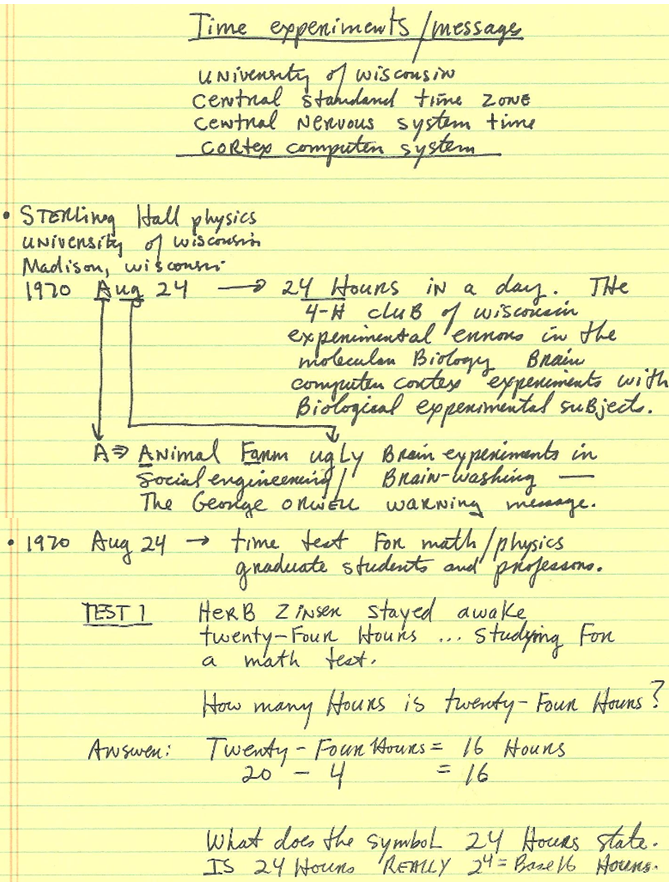 Time experiments/messages
University of Wisconsin
Central Standard Time Zone
Central Nervous System time
Cortex computer system
• STERling Hall physics
University of Wisconsin
Madison, Wisconsin
1970 Aug 24 → 24 Hours in a day. The
4-H cluB of Wisconsin
experimental errors in the
molecular Biology Brain
computer cortex experiments with
Biological experimental suBjects.
A ⇒ Animal Farm ugly Brain experiments in
Social engineering/ Brain-washing —
The George ORWELL WARNING message.
• 1970 Aug 24 → time test For math/physics
graduate students and professors.
TEST 1 HERB Zinser stayed awake
twenty-Four Hours ... studying For
a math test.
How many Hours is twenty-Four Hours?
Answer: Twenty - Four Hours = 16 Hours
20 - 4 = 16
What does the symbol 24 Hours state.
IS 24 Hours REALLY 2⁴ = Base 16 Hours.